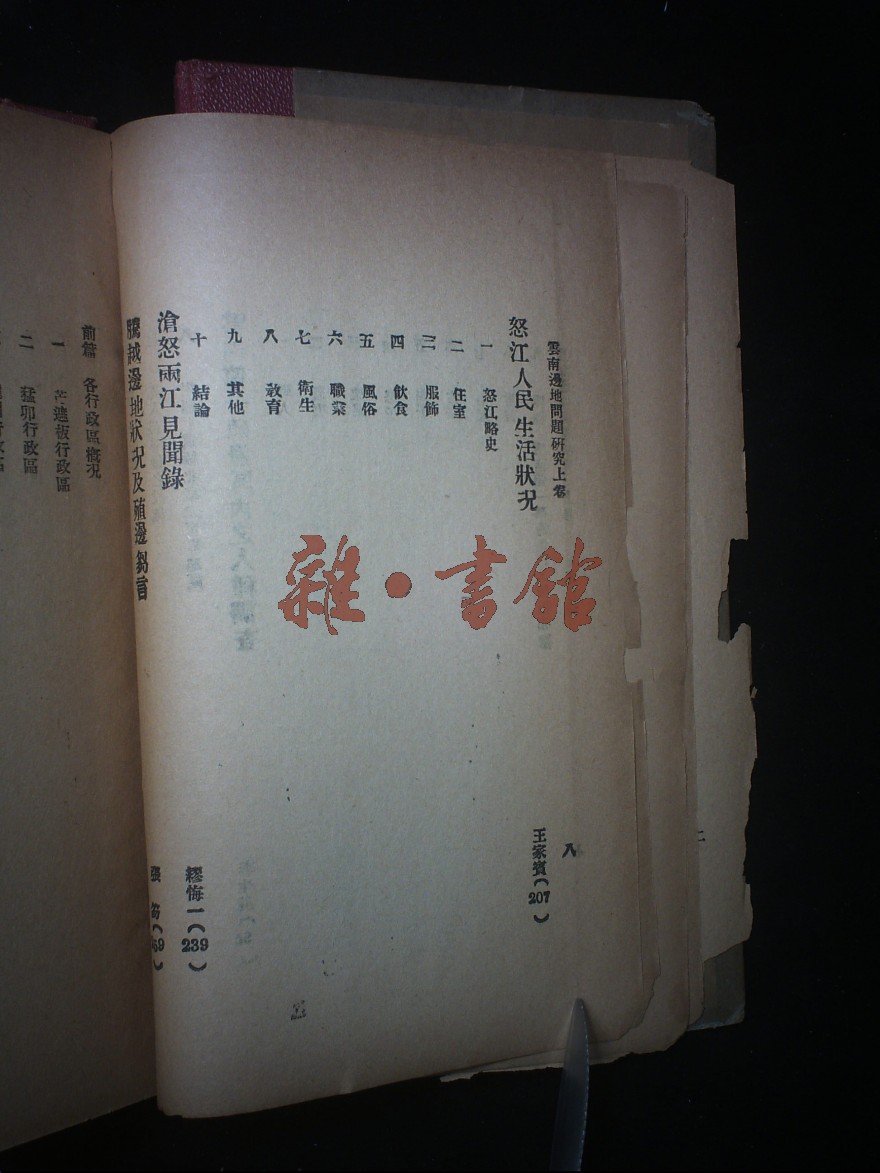 雲南邊地問題研究上卷
八
怒江人民生活狀況
王家賓(207)
一 怒江略史
二 住室
三 服飾
四 飲食
五 風俗
六 職業
七 衛生
八 教育
九 其他
十 結論
滄怒兩江見聞錄
繆悔一(239)
騰越邊地狀況及殖邊芻言
張笏
前篇 各行政區概況
一 芒遮板行政區
二 猛卯行政區
雜·書館